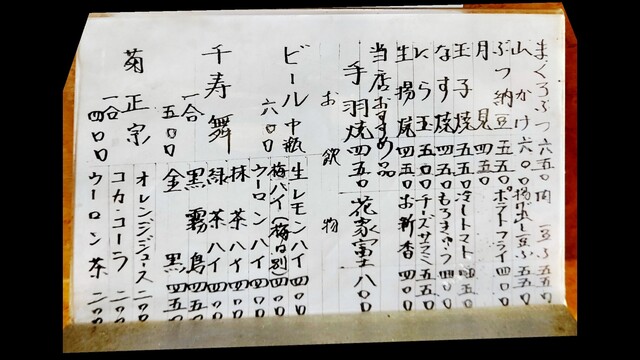 まぐろぶつ 六五〇 肉豆ふ 五五〇
山かけ 六〇〇 揚げ出し豆ふ 五五〇
ぶつ納豆 五五〇 ポテトフライ 四〇〇
月見 四五〇
玉子焼 五五〇 冷しトマト 四五〇
なす焼 四五〇 もろきゅう 四〇〇
にら玉 五〇〇 チーズサラミ 五五〇
生揚焼 四五〇 お新香 四〇〇
当店おすすめ品
手羽焼 四五〇 花家冨士 八〇〇
お飲物
ビール 中瓶 六〇〇
生レモンハイ 四五〇
梅ハイ(梅は別) 四〇〇
ウーロンハイ 四〇〇
千寿舞 一合 五〇〇
抹茶ハイ 四五〇
緑茶ハイ 四〇〇
黒霧島 四五〇
金黒 四五〇
菊正宗 一合 四〇〇
オレンジジュース 二〇〇
コカ・コーラ 二〇〇
ウーロン茶 二〇〇